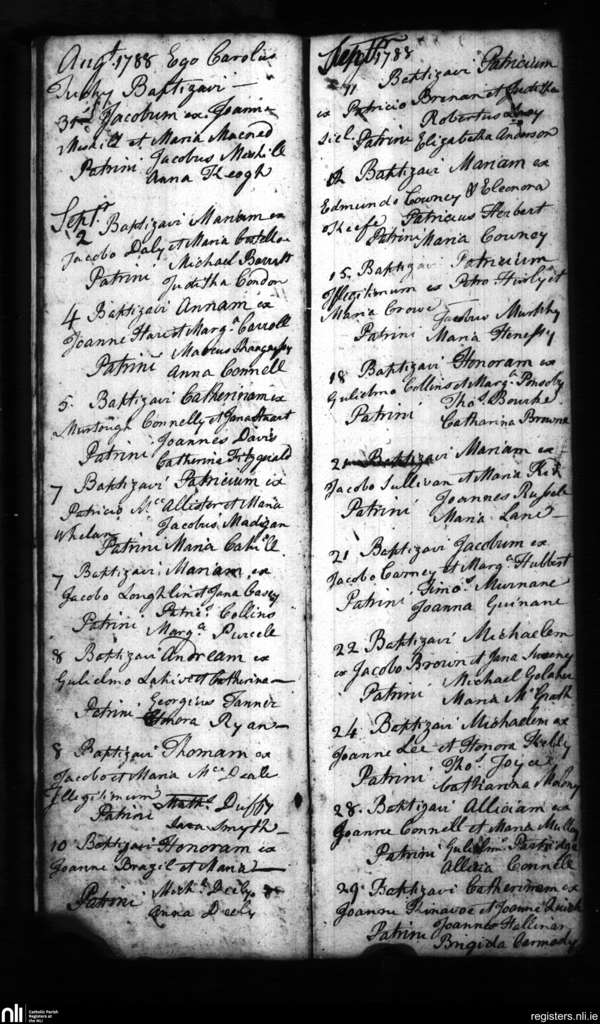 Augt. 1788 Ego Carolus
Tuohy Baptizavi
31st Jacobum ex Joanne
Meskill et Maria Macned
Patrini Jacobus Meskill
Anna Keogh
Septr.
2 Baptizavi Mariam ex
Jacobo Daly et Maria Costello
Patrini Michael Barrett
Juditha Condon
4 Baptizavi Annam ex
Joanne Hare et Marga. Carroll
Patrini Marcus Shaughnessy
Anna Connell
5. Baptizavi Catherinam ex
Murtough Connelly et Jana Stuart
Patrini Joannes Davis
Catherine Fitzgerald
7 Baptizavi Patricium ex
Patricio Mc.Allister et Maria
Whelan Jacobus Madigan
Patrini Maria Cahill
7 Baptizavi Mariam ex
Jacobo Loughlin et Jana Casey
Patrini Patrics. Collins
Marga. Purcell
8 Baptizavi Andream ex
Gulielmo Lahive et Catherina
Patrini Georgius Tanner
Honora Ryan
8 Baptizavi Thomam ex
Jacobo et Maria Mc.Deale
Illegitimum Maths. Duffy
Patrini Smyth
10 Baptizavi Honoram ex
Joanne Brazil et Maria
Patrini Michs. Deely
Anna Deely
Septr. 1788
11 Baptizavi Patricium
ex Patricio Brenan et Juditha
Robertus
Patrini Elizabetha Anderson
12 Baptizavi Mariam ex
Edmundo Cowney & Eleonora
OKeefe Patricius Herbert
Patrini Maria Cowney
15. Baptizavi Patricium
Illegitimum ex Petro et
Maria Crowe Jacobus Murphy
Patrini Maria Henessy
18 Baptizavi Honoram ex
Gulielmo Collins et Marga. Ponsoby
Patrini Thos. Bourke
Catharina Browne
21 Baptizavi Mariam ex
Jacobo Sullivan et Maria
Patrini Joannes Russell
Maria Lane
21 Baptizavi Jacobum ex
Jacobo Carney et Marga. Hubbert
Patrini Timos. Murnane
Joanna Guinane
22 Baptizavi Michaelem
ex Jacobo Brown et Jana Sweeney
Patrini Michael Golaher
Maria Mc.Grath
24. Baptizavi Michaelem ex
Joanne Lee et Honora
Patrini Thos. Joyce
Catharina Molony
28. Baptizavi Alliciam ex
Joanne Connell et Maria Mulloy
Patrini Gulielms. Partridge
Allicia Connell
29. Baptizavi Catherinam ex
Joanne Kinavoe et Joanne Quirk
Patrini Joannes Hallinan
Brigida Carmody
nli
Catholic Parish
Registers at
the NLI
registers.nli.ie